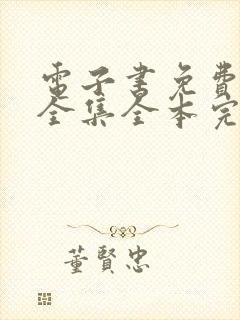 電子書免費
全集全本完
董賢忠